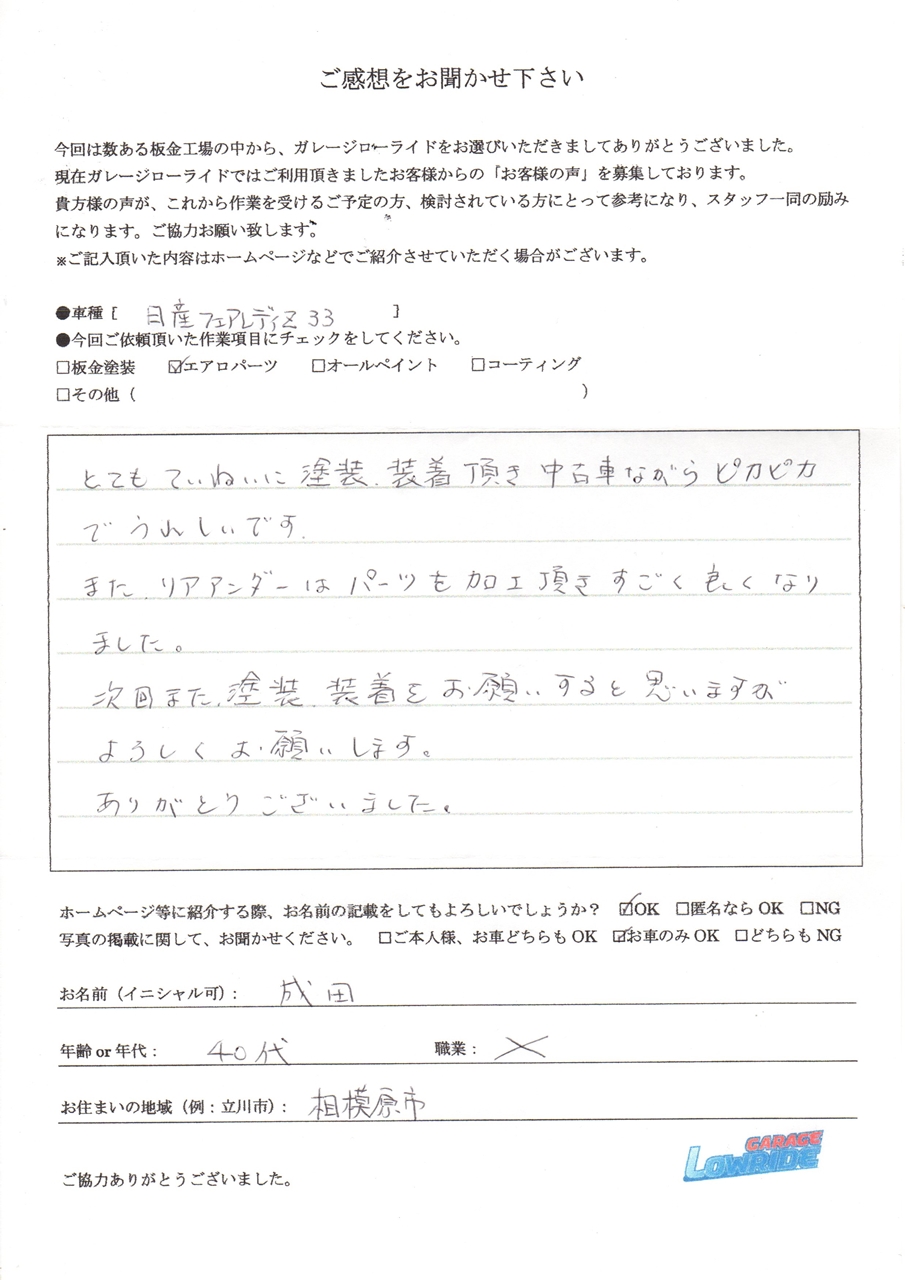 ご感想をお聞かせ下さい
今回は数ある板金工場の中から、ガレージローライドをお選びいただきましてありがとうございました。
現在ガレージローライドではご利用頂きましたお客様からの「お客様の声」を募集しております。
貴方様の声が、これから作業を受けるご予定の方、検討されている方にとって参考になり、スタッフ一同の励み
になります。ご協力お願い致します。
※ご記入頂いた内容はホームページなどでご紹介させていただく場合がございます。
●車種［ 日産フェアレディZ33 ］
●今回ご依頼頂いた作業項目にチェックをしてください。
□板金塗装 ☑エアロパーツ □オールペイント □コーティング
□その他（ ）
とても ていねいに 塗装、装着 頂き 中古車ながら ピカピカ
で うれしいです.
また、リアアンダーは パーツを 加工 頂き すごく 良く なり
ました。
次回また、塗装、装着を お願いすると 思いますが
よろしく お願いします。
ありがとうございました。
ホームページ等に紹介する際、お名前の記載をしてもよろしいでしょうか？ ☑OK □匿名なら OK □NG
写真の掲載に関して、お聞かせください。 □ご本人様、お車どちらも OK ☑お車のみ OK □どちらも NG
お名前（イニシャル可）： 成田
年齢 or 年代： 40代 職業： ×
お住まいの地域（例：立川市）： 相模原市
GARAGE
LOWRIDE
ご協力ありがとうございました。